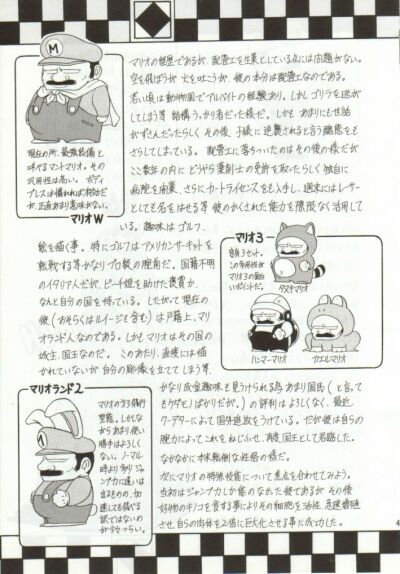 マリオの職歴であるが、配管工を生業としている点には問題がない。
空を飛ぼうが火を吐こうが、彼の本分は配管工なのである。
若い頃は動物園でアルバイトの経験あり。しかしゴリラを逃が
してしまう等 結構うっかり者だった様だ。しかも あまりにも世話が
ずさんだったらしく その後、子供に逆襲されると言う醜態をも
さらしてしまっている。配管工に落ちついたのはその後の様だが
ここ数年の内に どうやら薬剤士の免許を取ったらしく 独自に
病院を開業、さらにカートライセンスをも入手し、週末にはレーサ
ーとしても名をはせる等 彼のかくされた能力を際限なく活用して
いる。趣味はゴルフ、
現在の所、最強装備と
呼べるマントマリオ。その
汎用性は高い。ボディ
プレスは慣れれば有効だ
が、正直あまり意味がない。
マリオW
絵を描く事。特にゴルフはアメリカンサーキットを
転戦する等かなりプロ級の腕前だ。国籍不明
のイタリア人だが、ピーチ姫を助けた褒賞か、
なんと自分の国を持っている。したがって現在の
彼(おそらくはルイージも含む)は戸籍上、マリ
オランド人なのである。しかもマリオはその国の
城主、国王なのだ。このあたり、直接には描
かれていないが 自分の彫像を立ててしまう等
マリオ3
変身3セット。
この多様性が
マリオ3の面白
いポイントだ。
タヌキマリオ
ハンマーマリオ
カエルマリオ
マリオランド2
マリオの天下飛行
型態。しかしな
がらあまり使い
勝手はよろしく
ない。ノーマル
時より多少ジャ
ンプ力に違いは
出るものの、加
速しても飛べる
訳ではないの
が少々つらい。
かなり成金趣味と見うけられる為 あまり国民(と言って
もケダモノばかりだが。)の評判はよろしくなく、最近
クーデターによって国外追放をうけている。だが彼は自らの
腕力によってこれをねじふせ、再度 国王として君臨した。
なかなかに本末転倒な性格の様だ。
次にマリオの特殊技能について焦点を合わせてみよう。
当初はジャンプ力しか能のなかった彼であるが その後
好物のキノコを食する事によりその細胞を活性、急速増殖
させ、自らの肉体を2倍に巨大化させる事に成功した。
4